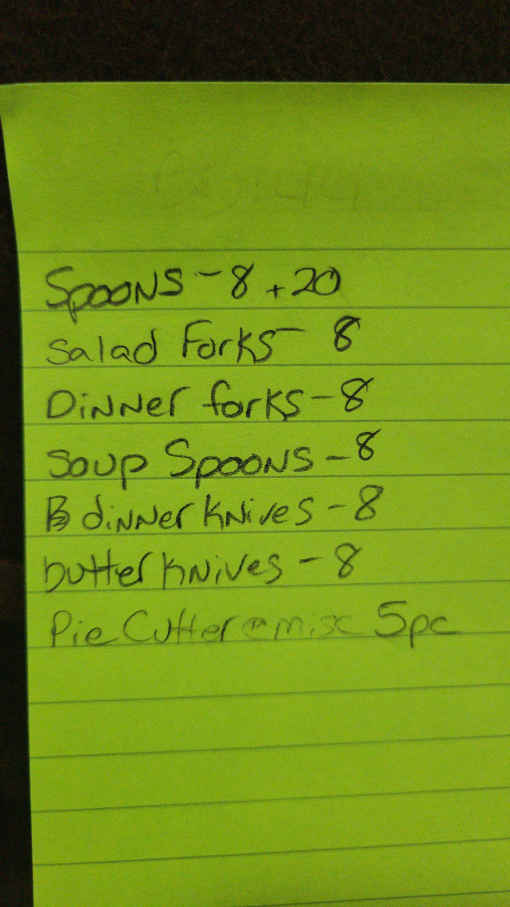 Spoons - 8 + 20
Salad Forks - 8
Dinner forks - 8
Soup Spoons - 8
B dinner knives - 8
butter knives - 8
Pie Cutter misc 5pc